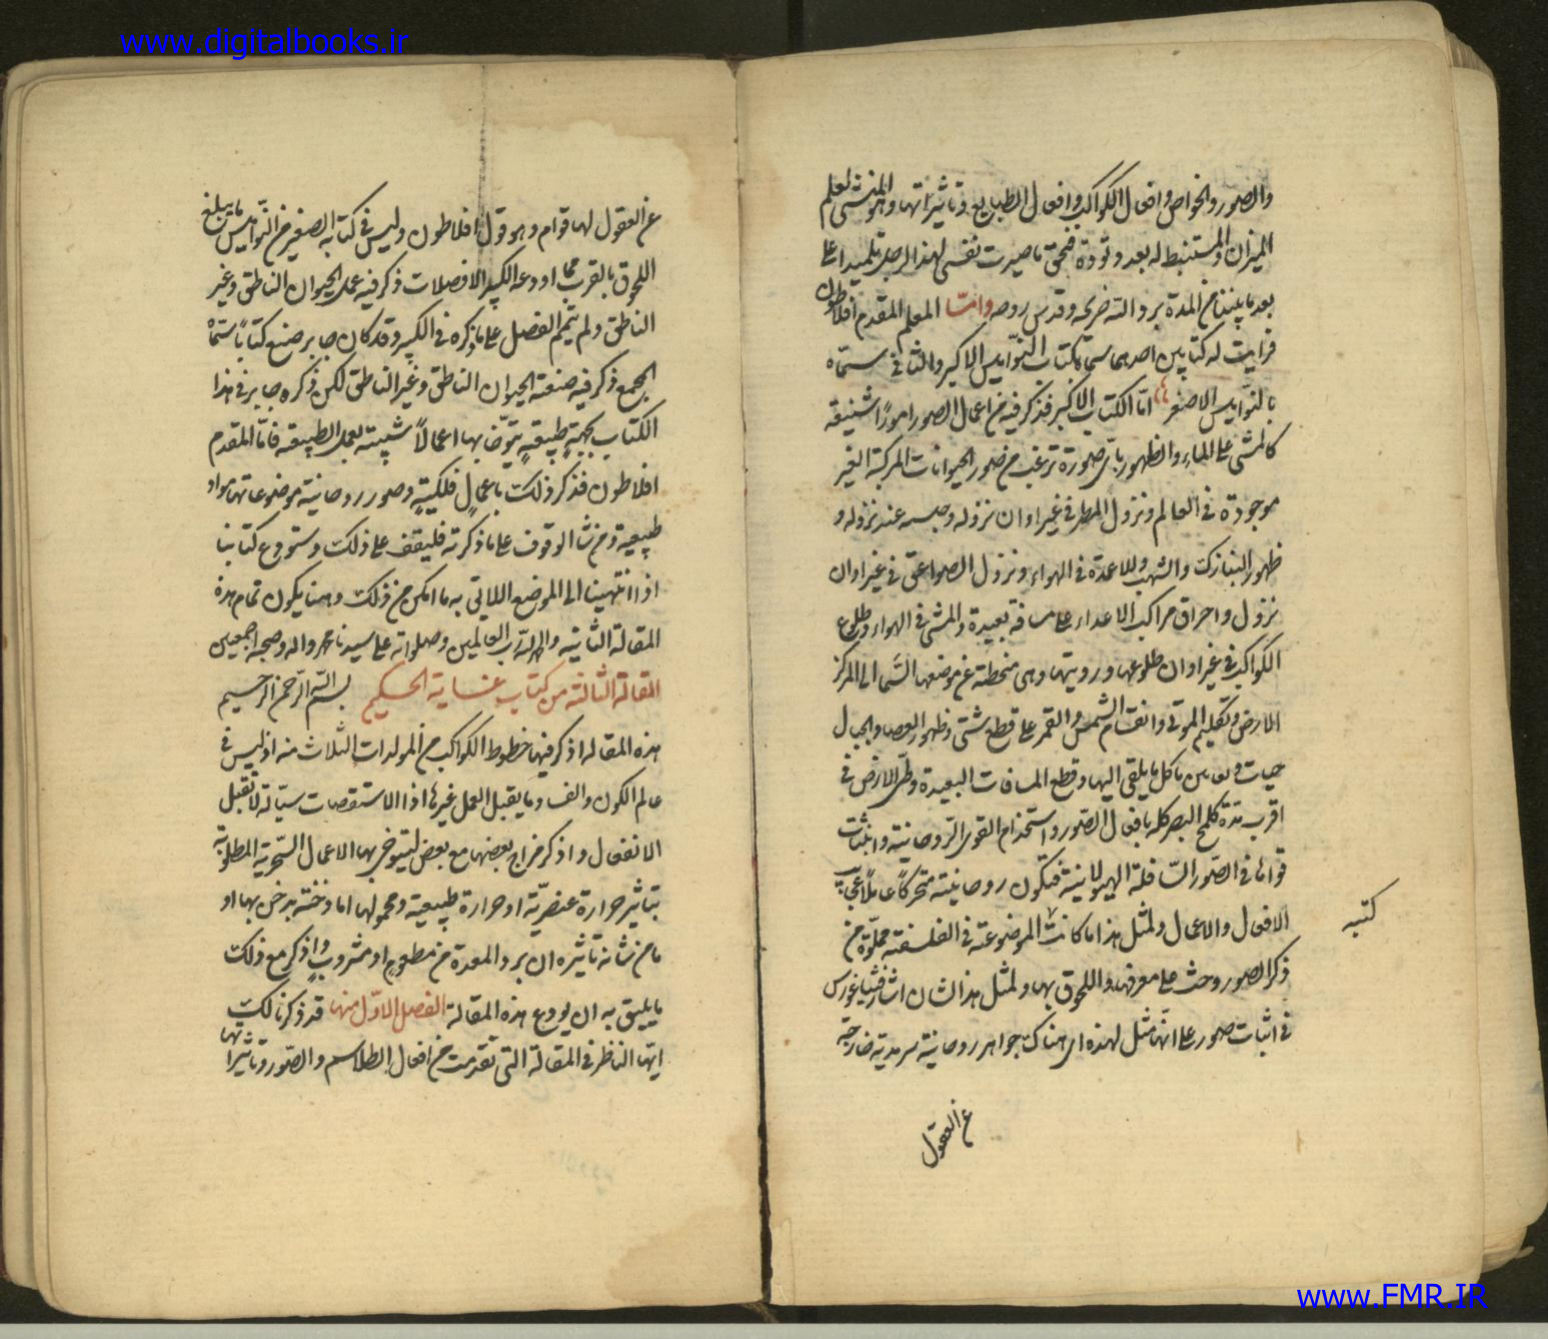 www.digitalbooks.ir
والصور والخواص وافعال الكواكب وافعال الطبايع وتاثيراتها وهو المنشئ لعلم
الميزان والمستنبط له بعد دثوره فبحق ما صيرت نفسى لهذا الرجل تلميذا على
بعد ما بيننا من المدة برد الله ضريحه وقدس روحه وامّا المعلم المقدم افلاطون
فرايت له كتابين احدهما سمّاه كتاب النّواميس الاكبر والثانى سمّاه
بالنّواميس الاصغر امّا الكتاب الاكبر فذكر فيه من اعمال الصور امورًا شنيعة
كالمشى على الماء والظهور باى صورة ترغب من صور الحيوانات المركبة الغير
موجودة فى العالم ونزول المطر فى غير اوان نزوله وحبسه عند نزوله و
ظهور النيازك والشهب والاعمدة فى الهواء ونزول الصواعق فى غير اوان
نزول واحراق مراكب الاعداء على مسافة بعيدة والمشى فى الهواء وطلوع
الكواكب فى غير اوان طلوعها ورويتها وهى منحطة عن موضعها السّماء الى المركز
الارض وتكليم الموتى وانقسام الشمس والقمر على قطع شتى وظهور العصا والحبال
حيات وثعابين تاكل ما يلقى اليها وقطع المسافات البعيدة وطىّ الارض فى
اقرب مدّة كلمح البصر كله بافعال الصّور واستخدام القوى الرّوحانية وانبثاث
قواها فى الصّور السّافلة الهيولانية فتكون روحانية متحركًا عاملًا عجايب
الافعال والاعمال ولمثل هذا ما كانت الموضوعة فى الفلسفة مملوّة من
ذكر الصور وحث على معرفتها واللحوق بها ولمثل هذا الشان اشار فيثاغورس
فى اثبات صور على انّها مثل لهذه اى هناك جواهر روحانية سرمدية خارجة
كتبه
عن العقول
عن العقول لها قوام وهو قول افلاطون وليس فى كتابه الصغير من النّواميس ما يبلغ
اللحوق بالقرب مما اودعه الكبير الا فصلات ذكر فيه عمل الحيوان الناطق وغير
الناطق ولم يتمم الفصل على ما ذكره فى الكبير وقد كان جابر صنع كتابًا سمّاه
الجمع ذكر فيه صنعة الحيوان الناطق وغير الناطق لكن ذكره جابر فى هذا
الكتاب بجهةٍ طبيعيةٍ بها اعمالًا شبيه بعمل الطبيعة فامّا المقدم
افلاطون فذكر ذلك باعمالٍ فلكيةٍ وصور روحانية موضوعاتها مواد
طبيعية ومن شاء الوقوف على ما ذكرته فليقف على ذلك وستودع كتابنا
اذا انتهينا الى الموضع اللاتى به ما امكن من ذلك وهنا يكون تمام هذه
المقالة الثانية والحمد لله رب العالمين وصلواته على سيدنا محمد واله وصحبه اجمعين
المقالة الثالثة من كتاب غاية الحكيم بسم الله الرّحمن الرّحيم
هذه المقالة اذكر فيها حظوظ الكواكب من المولدات الثلاث منه اذ ليس فى
عالم الكون والفساد ما يقبل العمل غيرها اذا الاستقصات سيّالة لا تقبل
الانفعال واذكر مزاج بعضها مع بعض ليتوخى بها الاعمال السّحرية المطلوبة
بتاثير حرارة عنصريّة او حرارة طبيعية ومحمولها اما دخنة يدخن بها او
ما من شانه تاثيره ان يرد المعدة من مطعومٍ او مشروبٍ واذكر مع ذلك
ما يليق به ان يودع هذه المقالة الفصل الاوّل منها قد ذكرنا لك
ايّها الناظر فى المقالة التى تقدمت من افعال الطلاسم والصّور وتاثيراتها
www.FMR.IR